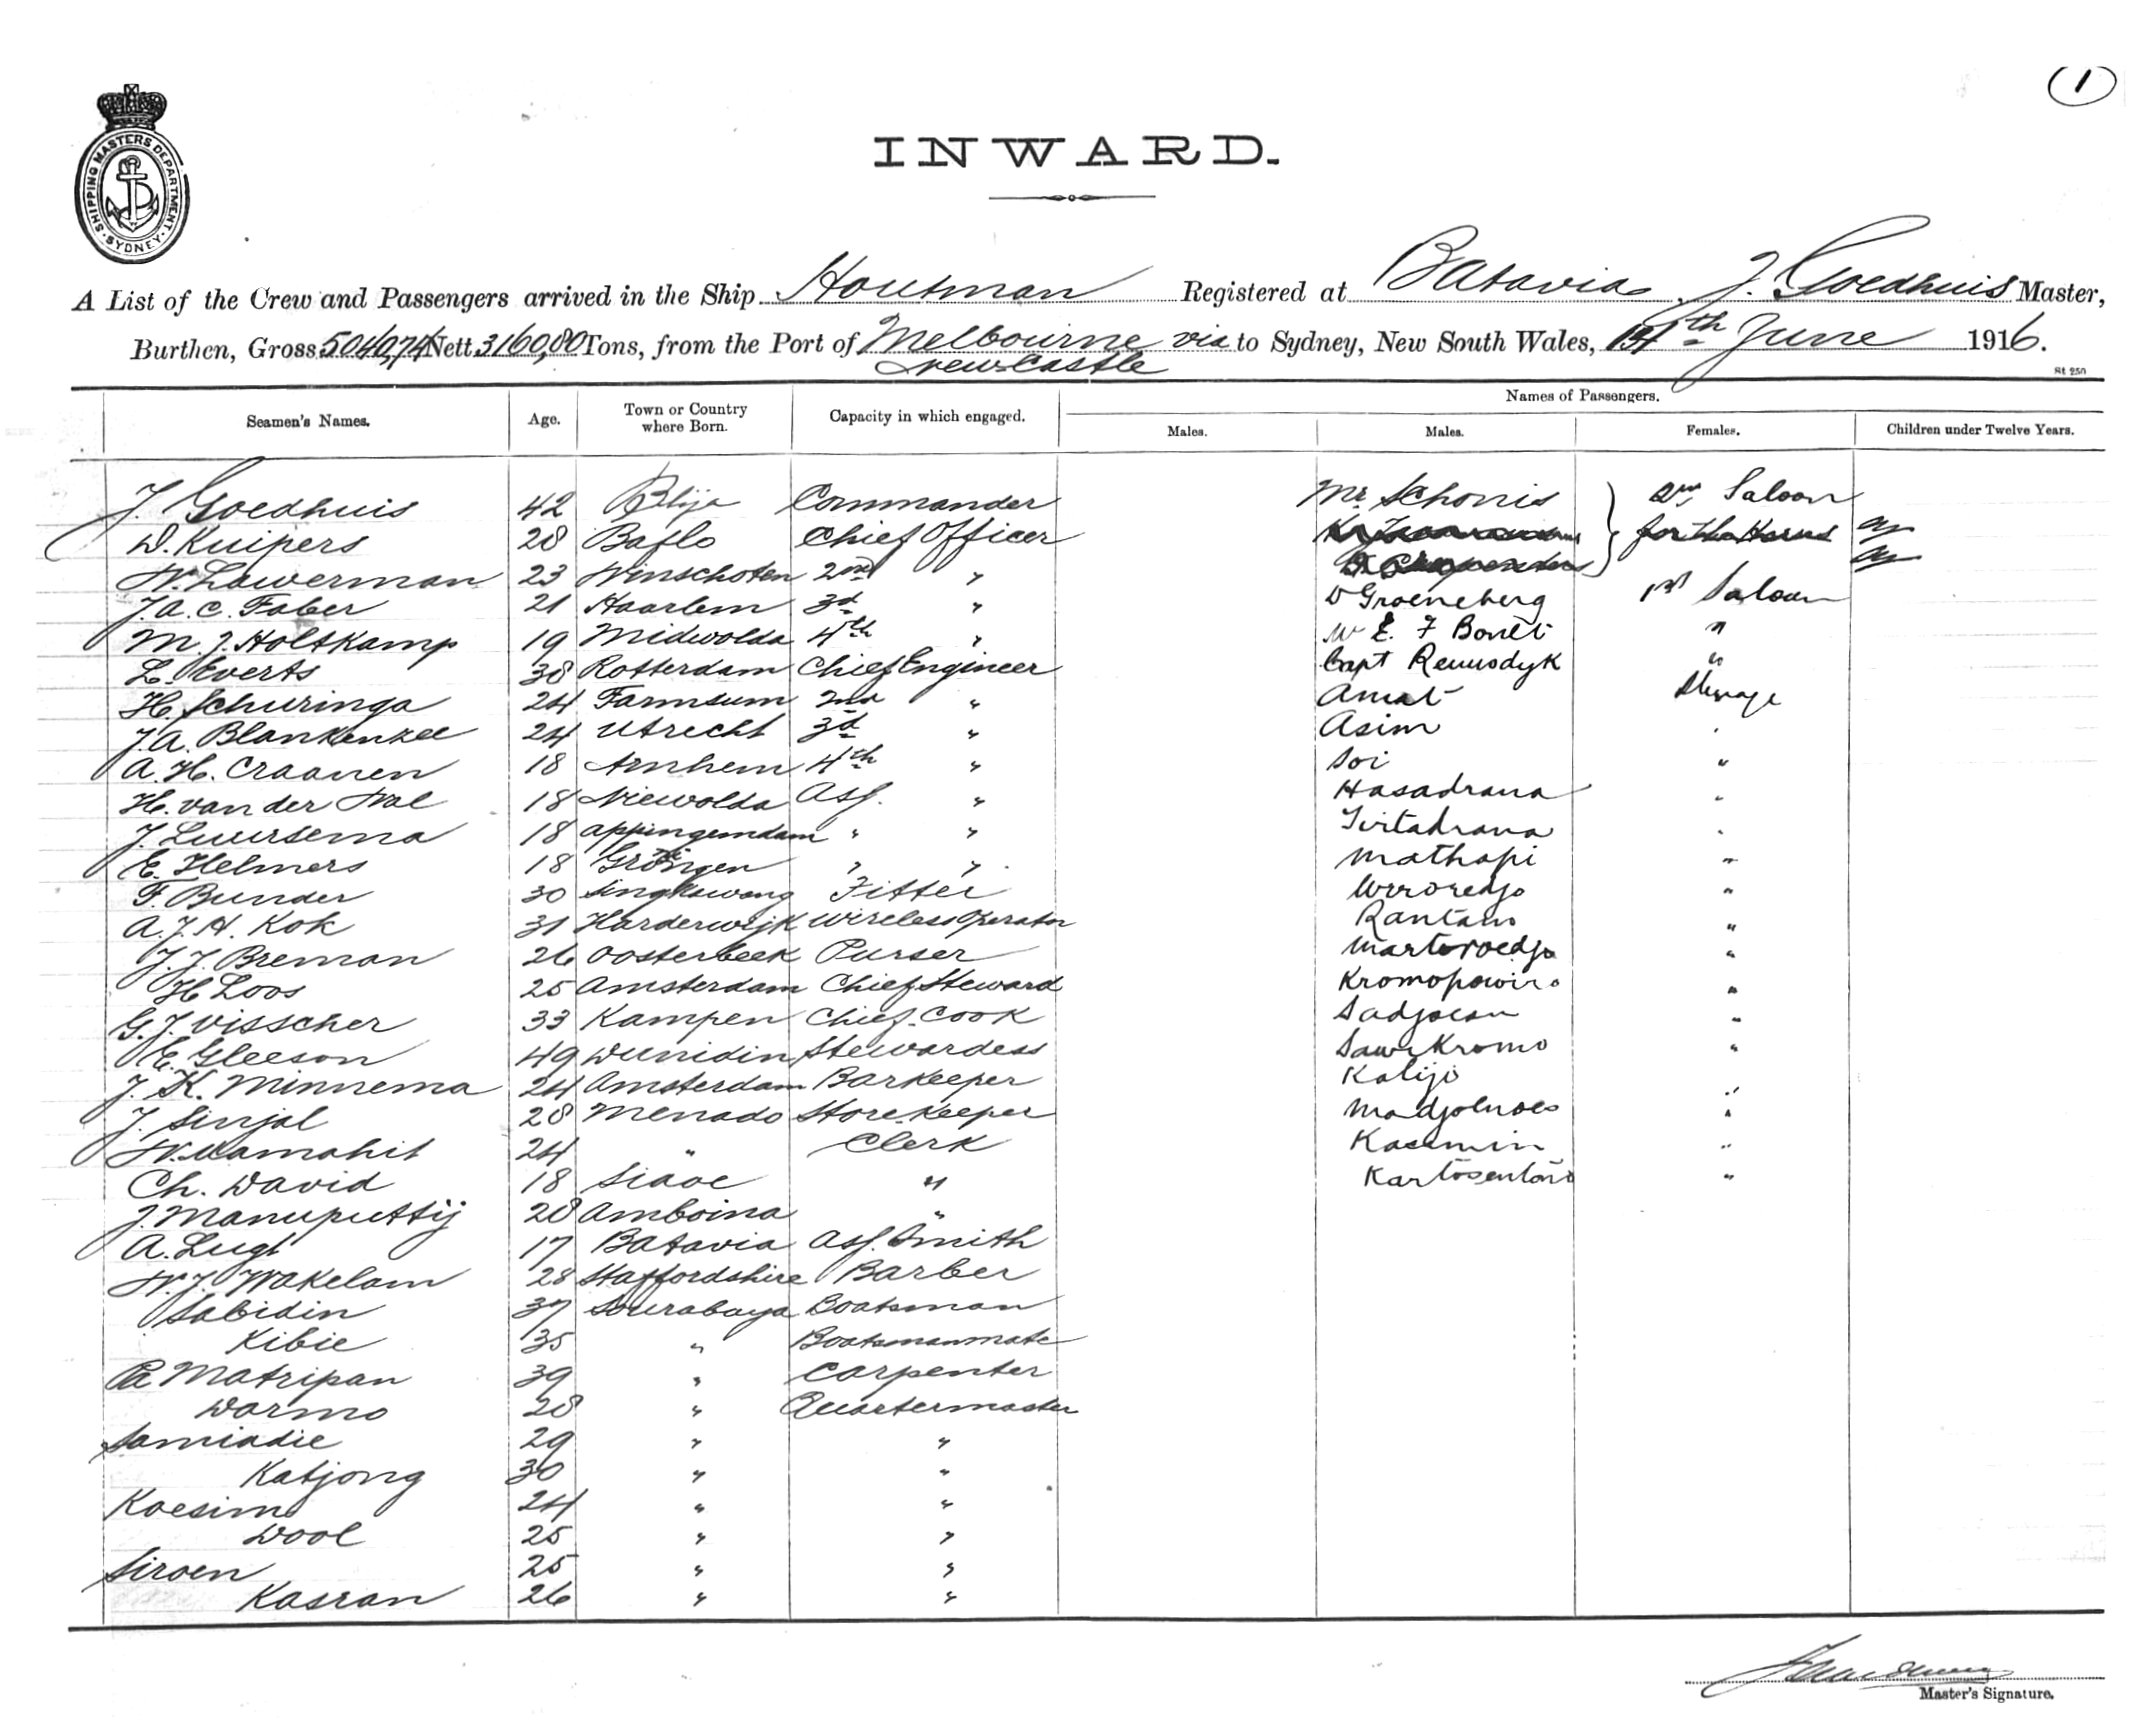 (1)
SHIPPING MASTERS DEPARTMENT · SYDNEY ·
INWARD.
A List of the Crew and Passengers arrived in the Ship Houtman Registered at Batavia, J. Goedhuis Master,
Burthen, Gross 5040,74 Nett 3160,80 Tons, from the Port of Melbourne via to Sydney, New South Wales, th June 1916.
Newcastle
St 250
Seamen's Names. Age. Town or Country where Born. Capacity in which engaged. Names of Passengers.
Males. Males. Females. Children under Twelve Years.
J. Goedhuis 42 Blija Commander Mr Schonis 2nd Saloon
D. Kuipers 28 Baflo Chief Officer
W. Lawerman 23 Winschoten 2nd "
J. A. C. Faber 21 Haarlem 3d " D Groeneberg 1st Saloon
M. J. Holtkamp 19 Midwolda 4th " W E. F Bonet "
L. Everts 38 Rotterdam Chief Engineer Capt "
H. Schuringa 24 Farmsum 2nd " Amat Steerage
J. A. Blankenzee 24 Utrecht 3d " Asim "
A. H. Craanen 18 Arnhem 4th " Soi "
H. van der Wal 18 Niewolda Ass. " Hasadrana "
J. Luursema 18 Appingemdam " " "
E. Helmers 18 Groningen " " Mathapi "
F. Bunder 30 Singkawang Fitter Wiroredjo "
A. J. H. Kok 31 Harderwijk Wireless Operator "
J. J. Breman 26 Oosterbeek Purser Martoroedjo "
H Loos 25 Amsterdam Chief Steward Kromopowiro "
G. J. Visscher 33 Kampen Chief Cook "
E. Gleeson 49 Dunidin Stewardess Sawikromo "
J. K. Minnema 24 Amsterdam Barkeeper Kalijo "
J. Sinjal 28 Menado Storekeeper "
W. Wamahit 24 " Clerk Kasemin "
Ch. David 18 Siaoe " "
J. Manuputtij 28 Amboina "
A. Lugt 17 Batavia Ass. Smith
W. J. Wakelam 28 Staffordshire Barber
Sabidin 37 Sourabaya Boatsman
Kibie 35 " Boatsmanmate
Matripan 39 " Carpenter
Darmo 28 " Quartermaster
Samiadie 29 " "
Katjong 30 " "
Koesim 24 " "
Dool 25 " "
Siroen 25 " "
Kasran 26 " "
Master's Signature.